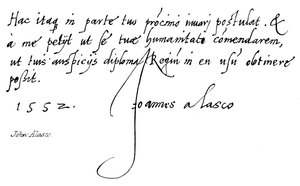 Hac itaq in parte tuo pròcinio iuuarj postulat. &
à me petijt ut sé tuæ humanitatj cómendarem,
ut tuis auspicijs diploma Regiū in en usū obtinere
possit.
1552. Joannes a Lasco
John Alasco